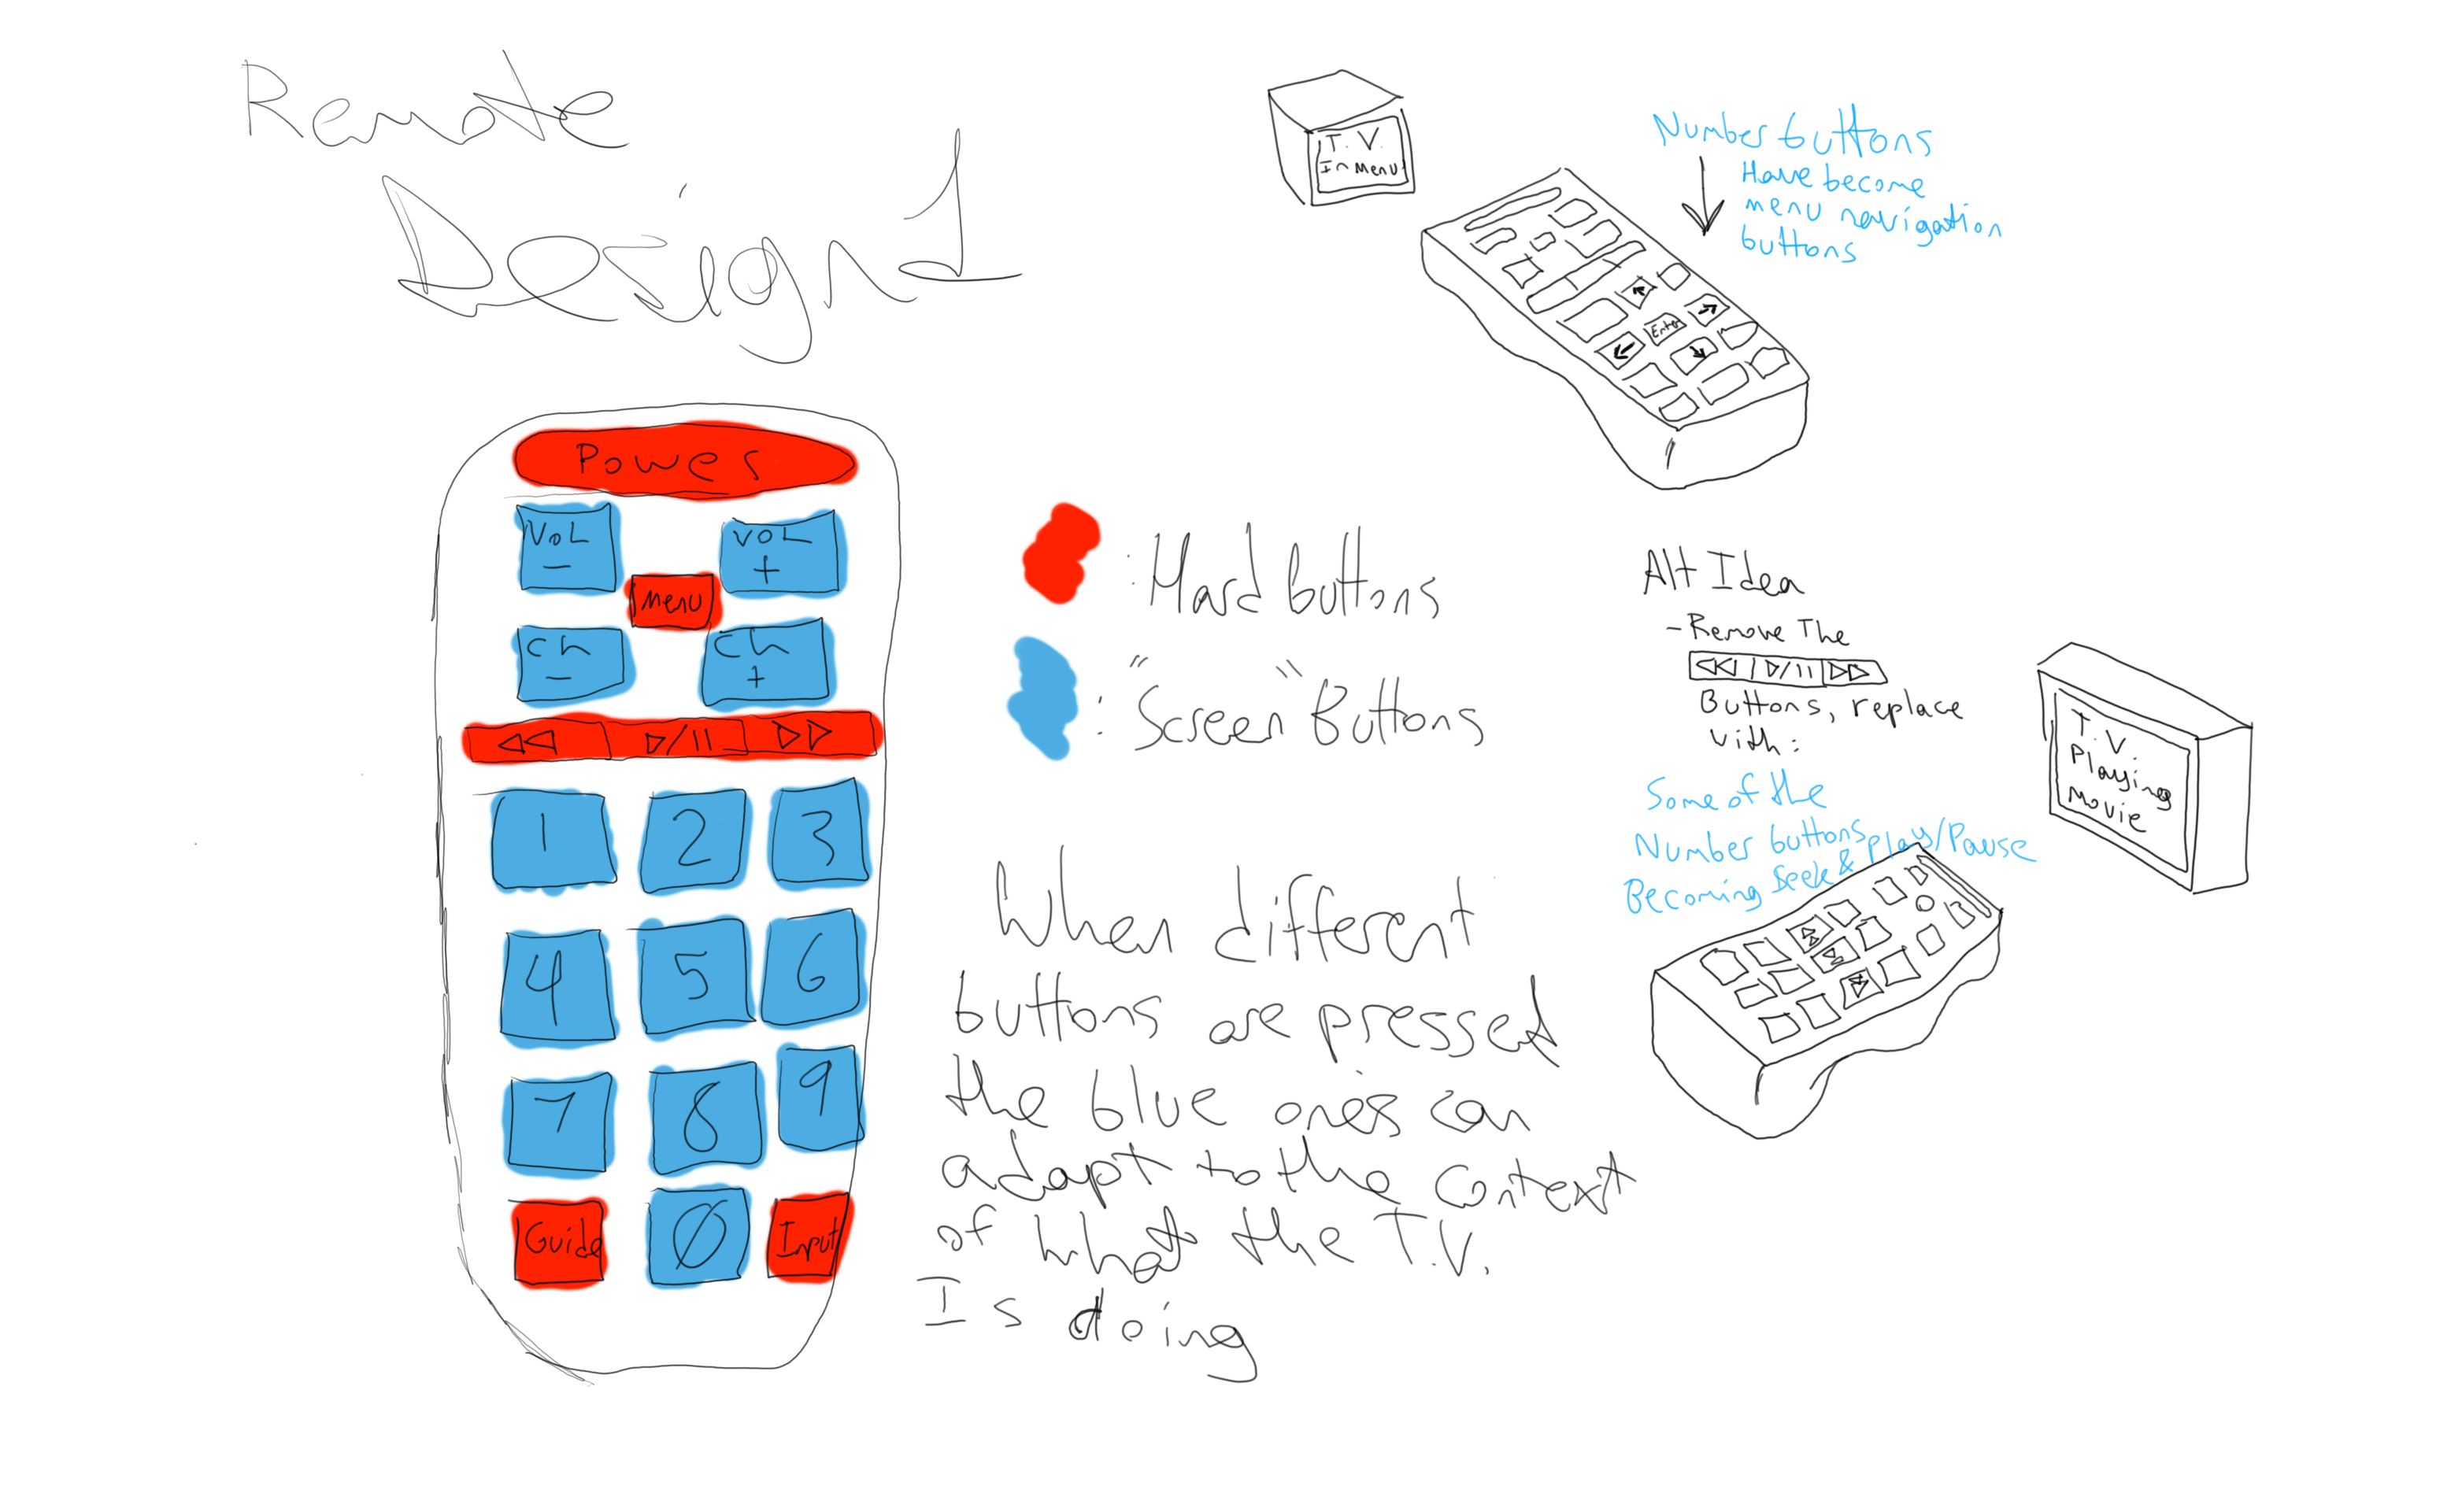 Remote
Design 1
Power
VOL
-
VOL
+
Menu
Ch
-
Ch
+
▷/||
1
2
3
4
5
6
7
8
9
Guide
0
Input
: Hard buttons
: "Screen" Buttons
When different
buttons are pressed
the blue ones can
adapt to the context
of what the T.V.
Is doing
T.V.
In Menu
Number buttons
Have become
menu navigation
buttons
Enter
Alt Idea
- Remove The
▷/||
Buttons, replace
with:
Some of the
Number buttons
Becoming Seek & play/pause
T.V.
Playing
Movie